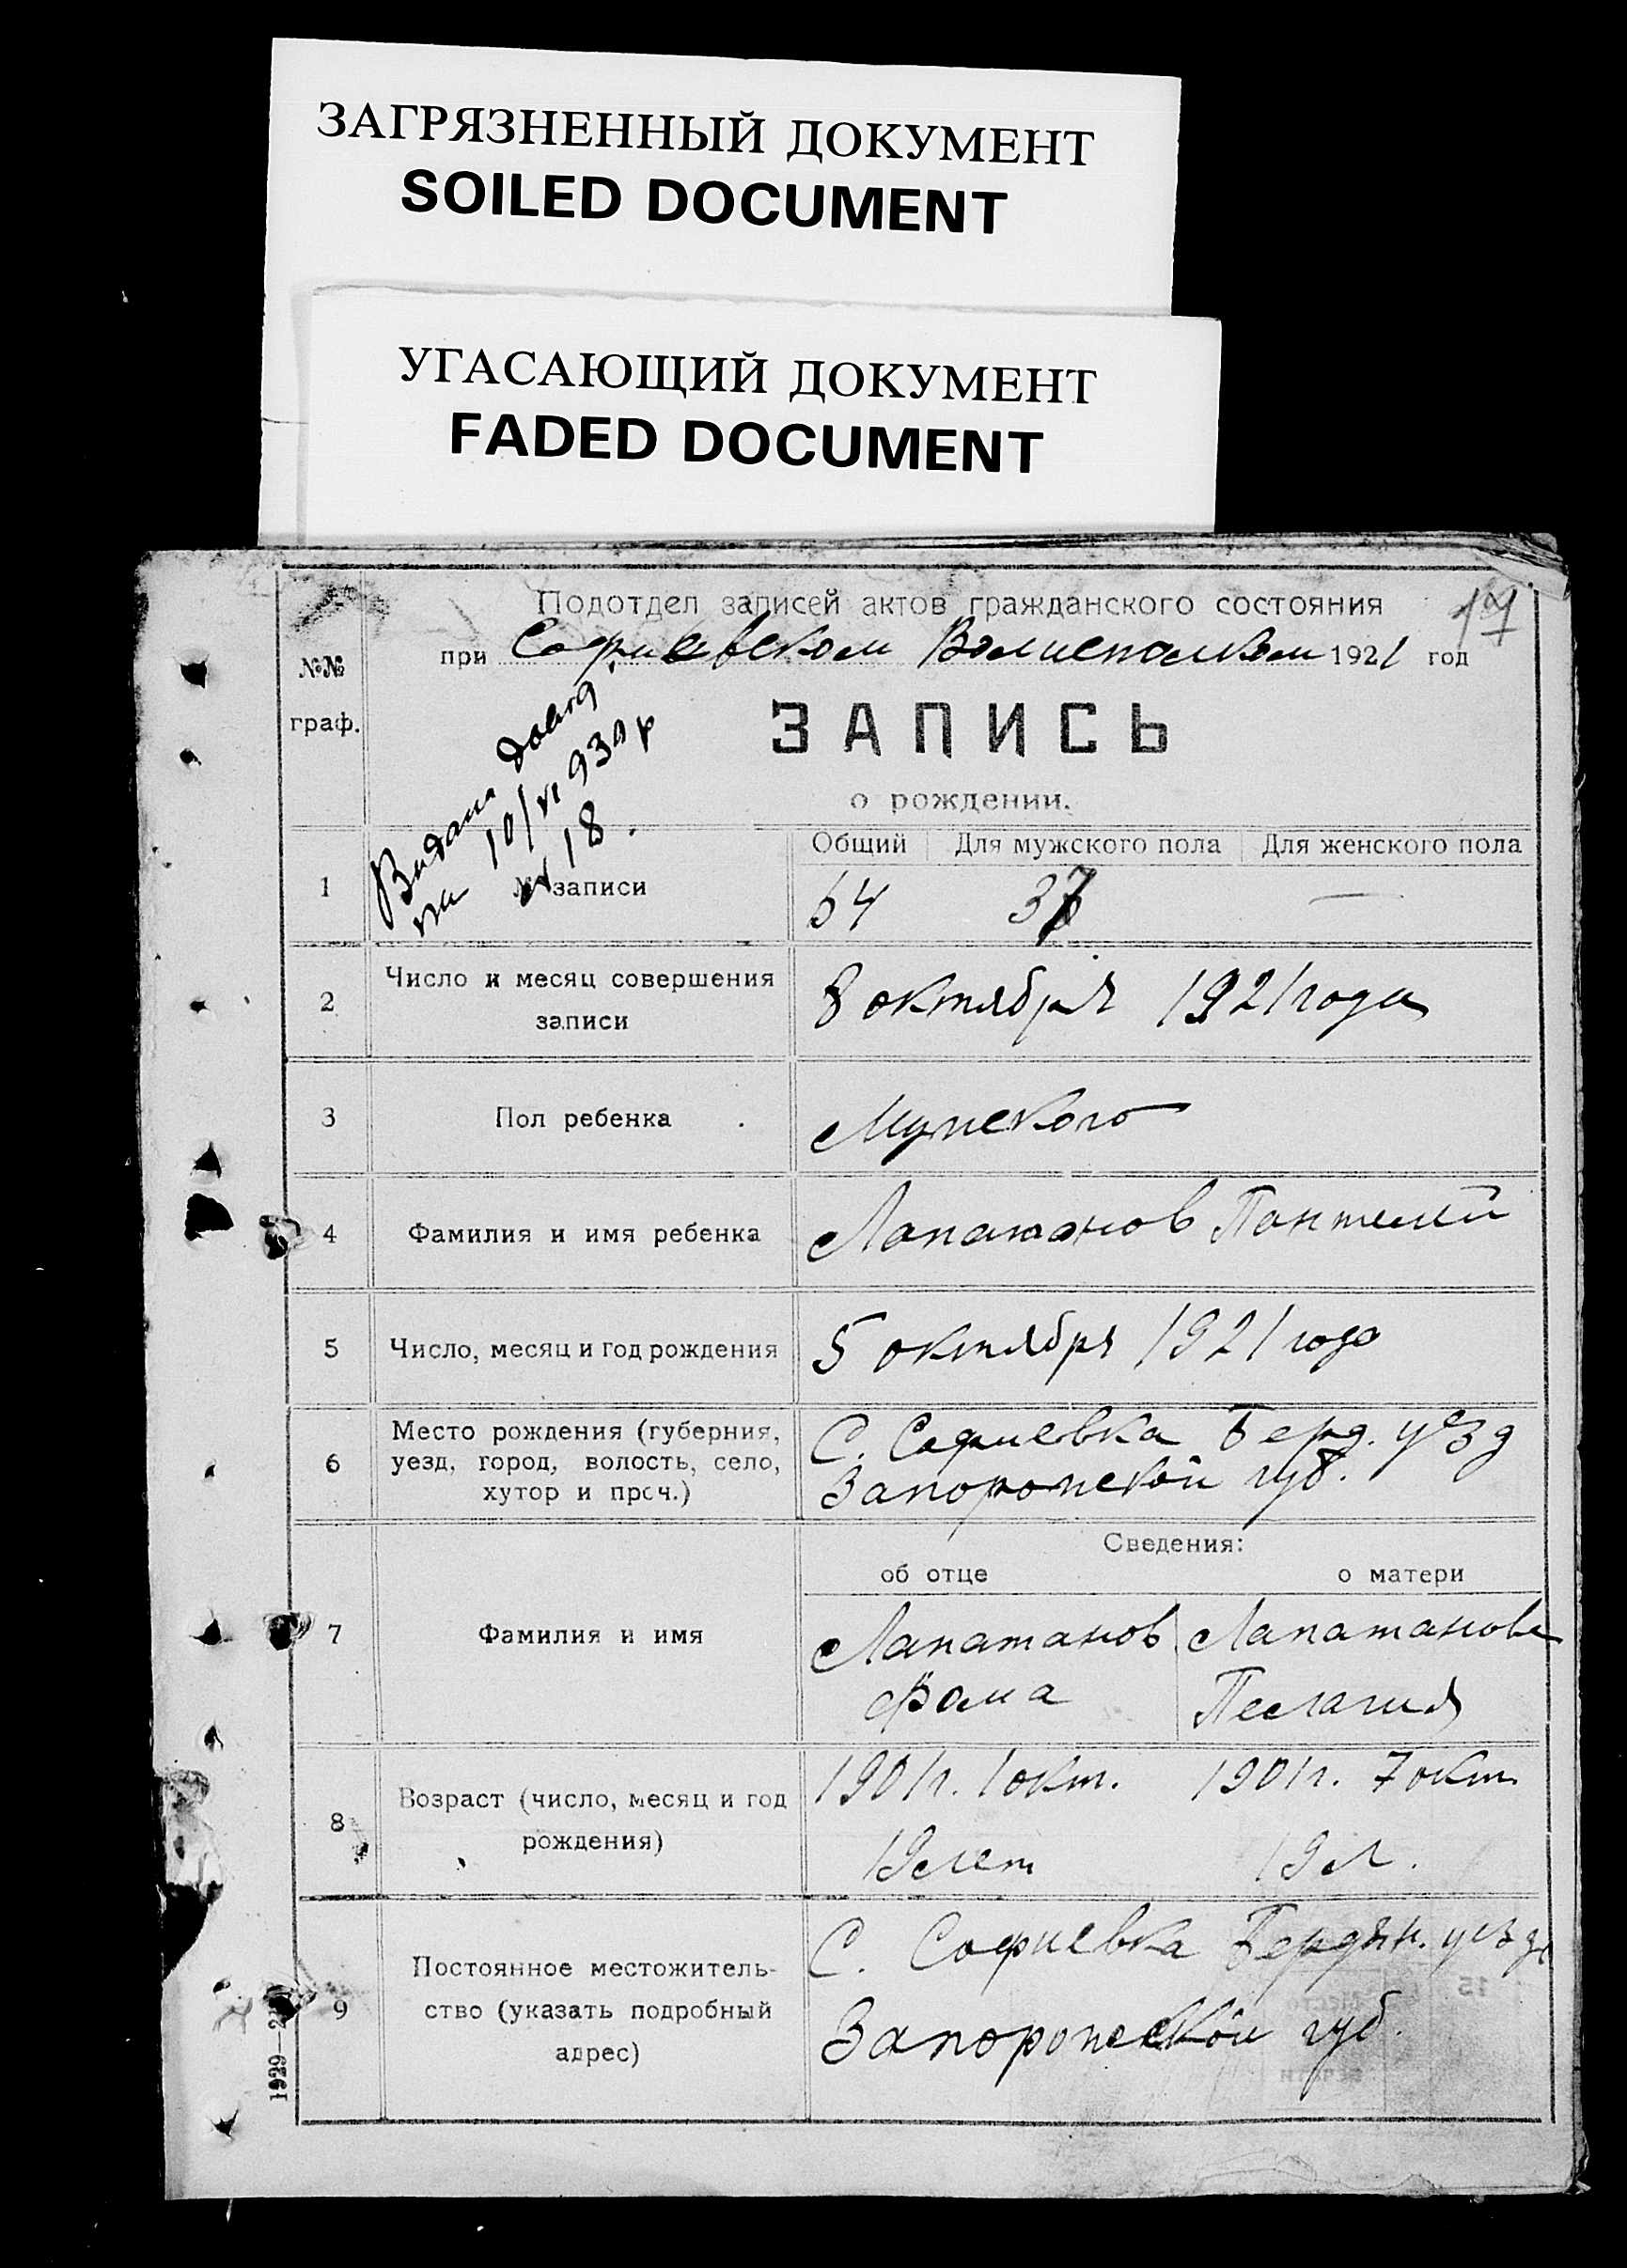 ЗАГРЯЗНЕННЫЙ ДОКУМЕНТ
SOILED DOCUMENT
УГАСАЮЩИЙ ДОКУМЕНТ
FADED DOCUMENT
Подотдел записей актов гражданского состояния
при Софиевском Волисполкоме 1921 год
№№ граф.
ЗАПИСЬ
о рождении.
Видана
на 10/VI 930 р
№ 18.
Общий Для мужского пола Для женского пола
1 № записи 64 37 —
2 Число и месяц совершения
записи
8 октября 1921 года
3 Пол ребенка Мужского
4 Фамилия и имя ребенка Лапатанов Пантелей
5 Число, месяц и год рождения 5 октября 1921 года
6 Место рождения (губерния,
уезд, город, волость, село,
хутор и проч.)
С. Софиевка Берд. уезд
Запорожской губ.
Сведения:
об отце о матери
7 Фамилия и имя
Лапатанов Лапатанова
Фома Пелагия
8 Возраст (число, месяц и год
рождения)
1901 г. 1 окт. 1901 г. 7 окт.
19 лет 19 л.
9 Постоянное местожитель-
ство (указать подробный
адрес)
С. Софиевка Бердян. уезда
Запорожской губ.